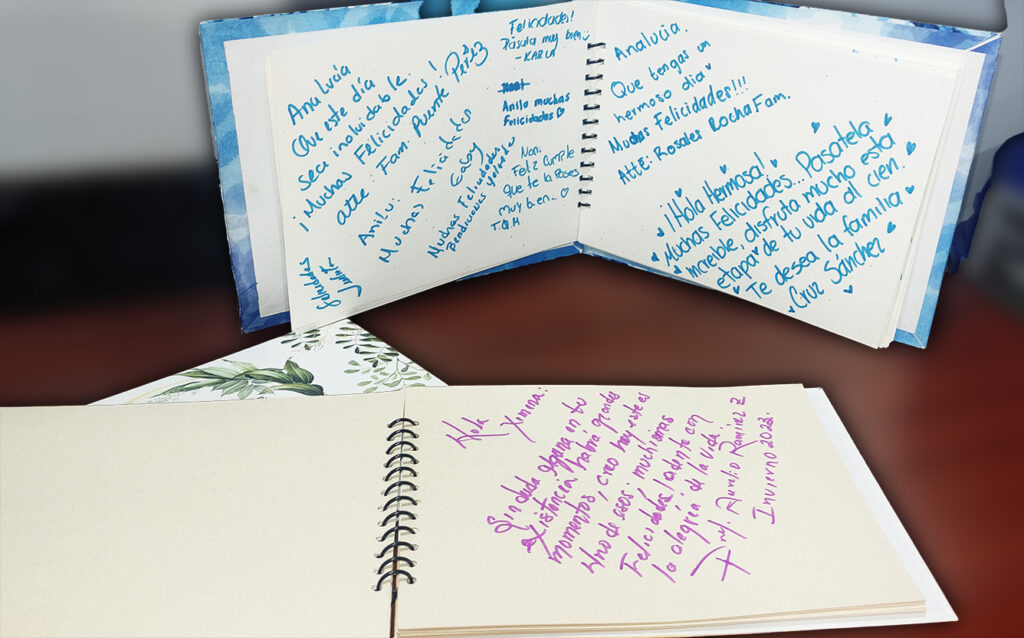 Analucía
Que este día
sea inolvidable.
¡Muchas Felicidades!
atte: Fam. Puente Pérez
Anilu:
Muchas Felicidades
Gaby
Muchas Felicidades
Bendiciones
Felicidades
Felicidades!
Pásala muy bien
-KARLA
Anilu muchas
Felicidades
Nari:
Feliz Cumple
que te la Pases
muy bien..
T.Q.M
Analucia.
Que tengas un
hermoso dia
Muchas Felicidades!!!
ATTE: Rosales Rocha Fam.
¡¡Hola Hermosa!
Muchas Felicidades... Pasatela
increible, disfruta mucho esta
etapa de tu vida al cien.
Te desea la familia
Cruz Sánchez
Hola
Ximina:
Sin duda alguna en tu
existencia habra grandes
momentos, creo hoy este es
uno de esos; muchisimas
Felicidades, adelante con
la alegría de la vida!
Prof. Aurelio Ramirez Z
Invierno 2023.